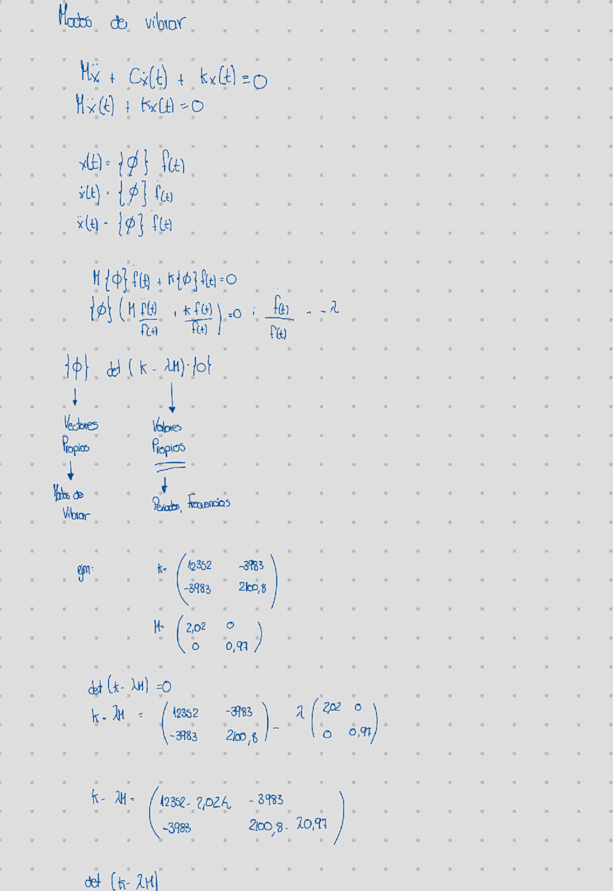 Modos de vibrar
Mẍ + Cẋ(t) + Kx(t) = 0
Mẍ(t) + Kx(t) = 0
x(t) = {φ} f(t)
ẋ(t) = {φ} ḟ(t)
ẍ(t) = {φ} f̈(t)
M{φ} f̈(t) + K{φ} f(t) = 0
{φ} ( M f̈(t)/f(t) + K f(t)/f(t) ) = 0 ; f̈(t)/f(t) = -λ
{φ} det (K - λM) = {0}
Vectores Valores
Propios Propios
Modos de Periodos, Frecuencias
Vibrar
ejm: K = ( 12352 -3983
-3983 2100,8 )
M = ( 2,02 0
0 0,97 )
det (K - λM) = 0
K - λM = ( 12352 -3983 ) - λ ( 2,02 0 )
( -3983 2100,8 ) ( 0 0,97 )
K - λM = ( 12352 - 2,02λ -3983
-3983 2100,8 - λ0,97 )
det (K - λM)